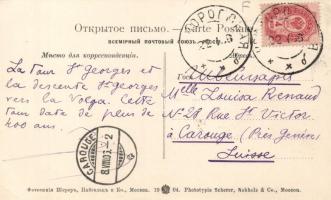 Открытое письмо. — Carte Postale
ВСЕМІРНЫЙ ПОЧТОВЫЙ СОЮЗЪ. РОССІЯ.
Мѣсто для корреспонденціи.
La tour St Georges et
la descente St Georges
vers la Volga. Cette
tour date de plus de
400 ans.
Швейцарія
Melle Louisa Renaud
N-28 Rue St Victor
à Carouge (Près Genève)
Suisse
CAROUGE
Фототипія Шереръ, Набгольцъ и Ко., Москва. 19 04. Phototypie Scherer, Nabholz & Co., Moscou.